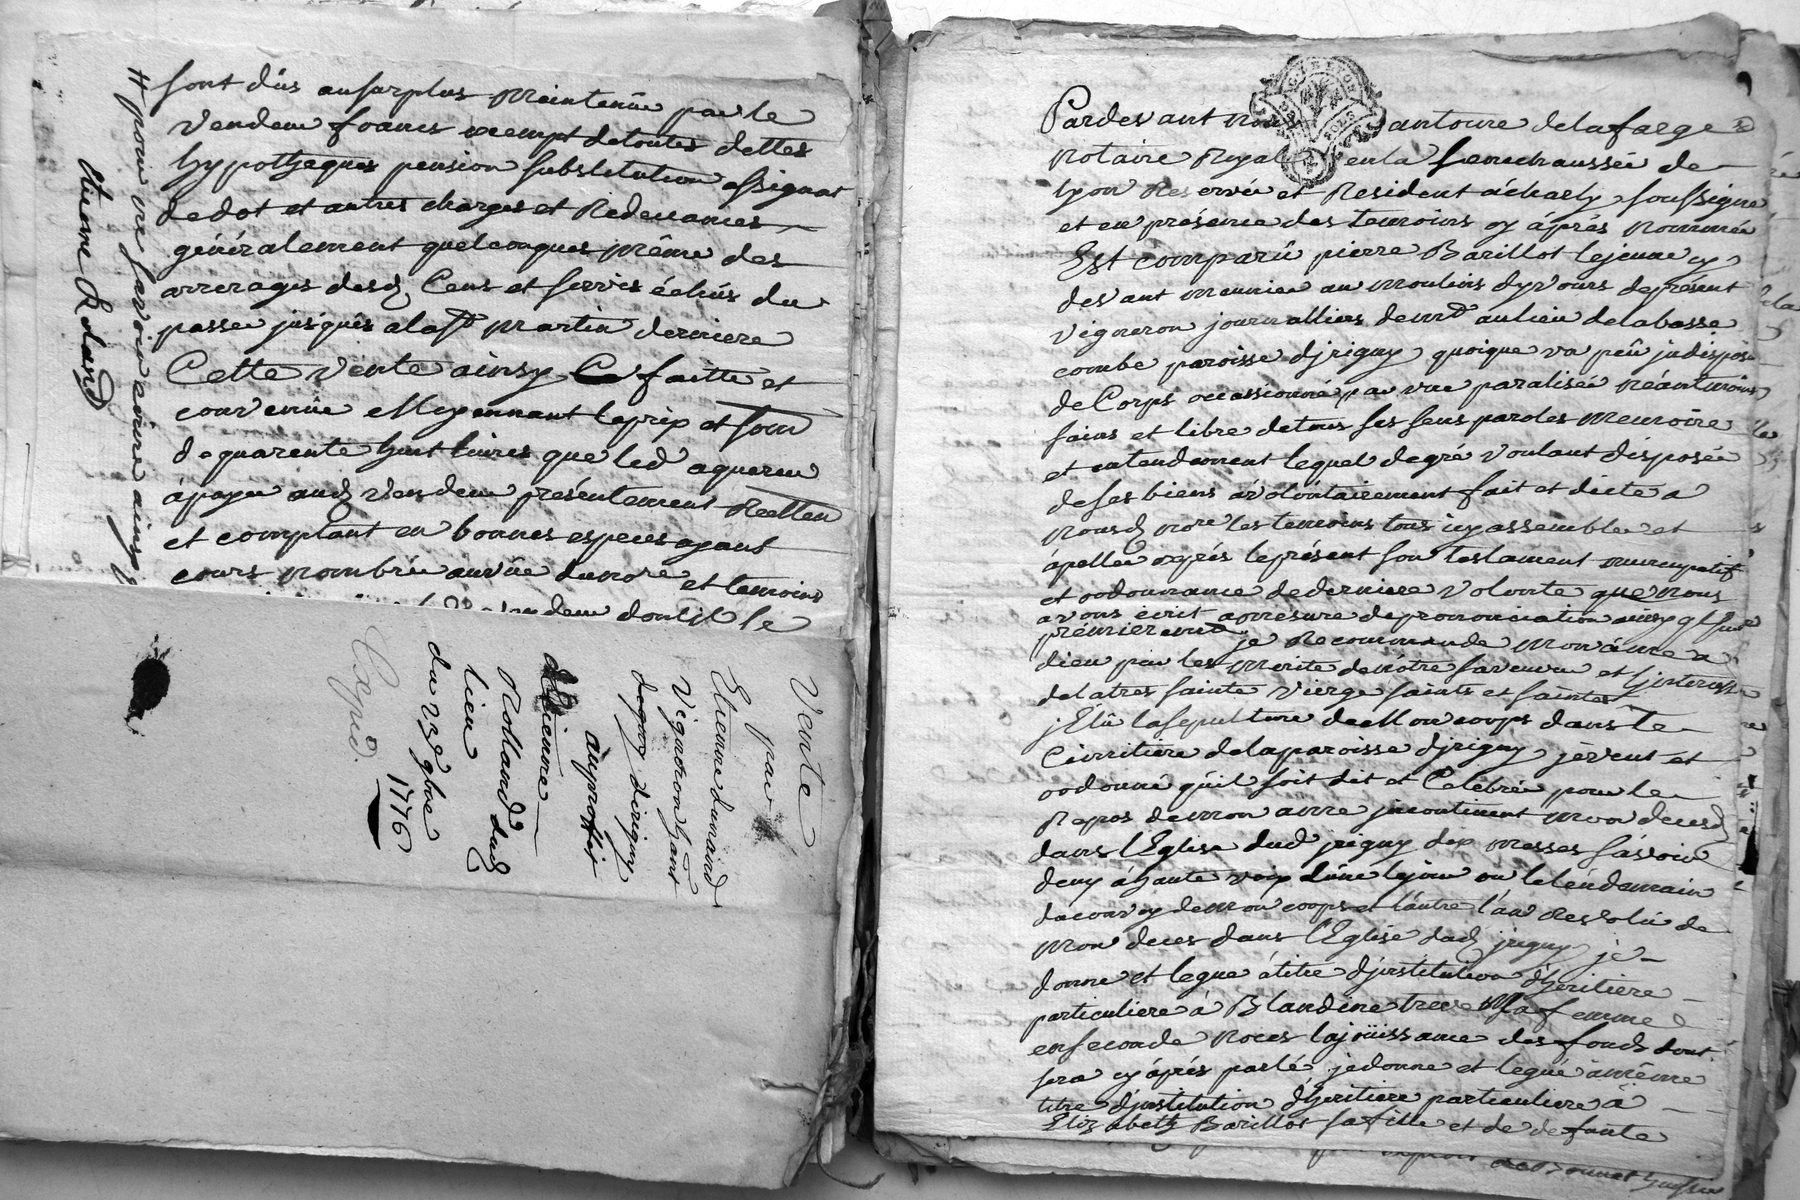 sont dûs au surplus maintenûe par le
Vendeur francs exempt de toutes dettes
hypotheques pension substitution assignat
de dot et autres charges et Redevances
généralement quelconques même des
arrerages desd Cens et servis échûs du
passe jusques a la st martin derniere
Cette vente ainsy faitte et
convenûe Moyennant le prix et som
de quarente huit livres que led aquereur
à payer aud Vendeur présentement Reellem
et comptant en bonnes especes ayant
cours nombrée au vûe du nore et temoins
Vendeur dont il le
# pour ne savoir ecrire ainsy
Etienne Roland
Vente
par
Etienne durand
Vigneron habant
dirigny
àuproffit
Rolland dud
lieu
du 9bre
1776
Expié.
Pardevant nous antoine delafarge
Notaire Royal en la senechaussée de
lyon Reservée et Resident à charly soussigné
et en présence des temoins cy àprés nommée
Est comparû pierre Barillot le jeune cy
devant meunier au moulins dyvours de présent
Vigneron journallier demt au lieu de la basse
combe paroisse djrigny quoique un peû jndispose
de Corps occassionné par une paralisée néantmoins
sains et libre de tous ses sens paroles memoire
et entendement lequel de gré voulant disposée
de ses biens à volontairement fait et dicte a
nousd nore les temoins tous icy assemblée et
àpellée exprés le présent son testament nuncupatif
et ordonnance de derniere volonte que nous
avons écrit a mesure de prononciation ainsy q suit
prémierement je Recommende mon âme a
dieu par les merite de notre sauveur et jntercession
de la tres sainte Vierge saints et saintes
j'Elû la sepulture de Mon coorps dans le
Cimitiere de la paroisse djrigny jeveut et
ordonné qu'il soit dit et Celébrée pour le
Repos de mon ame jncontinent mon decesd
dans l'Eglise dud jrigny dix messes sàvoir
deux à haute voix l'une le jour ou le lendemain
du convoy de mon coorps et l'autre l'an Resvolû de
mon deces dans l'Eglise dud jrigny je
donne et legue à titre d'jnstitution d'heritiere
particuliere à Blandine treve Ma femme
en seconde noces la joüissance des fonds dont
sera cy àprés parlé je donne et legue à même
titre d'jnstitution d'heritiere particuliere à
Elizabeth Barillot sa fille et de defunte